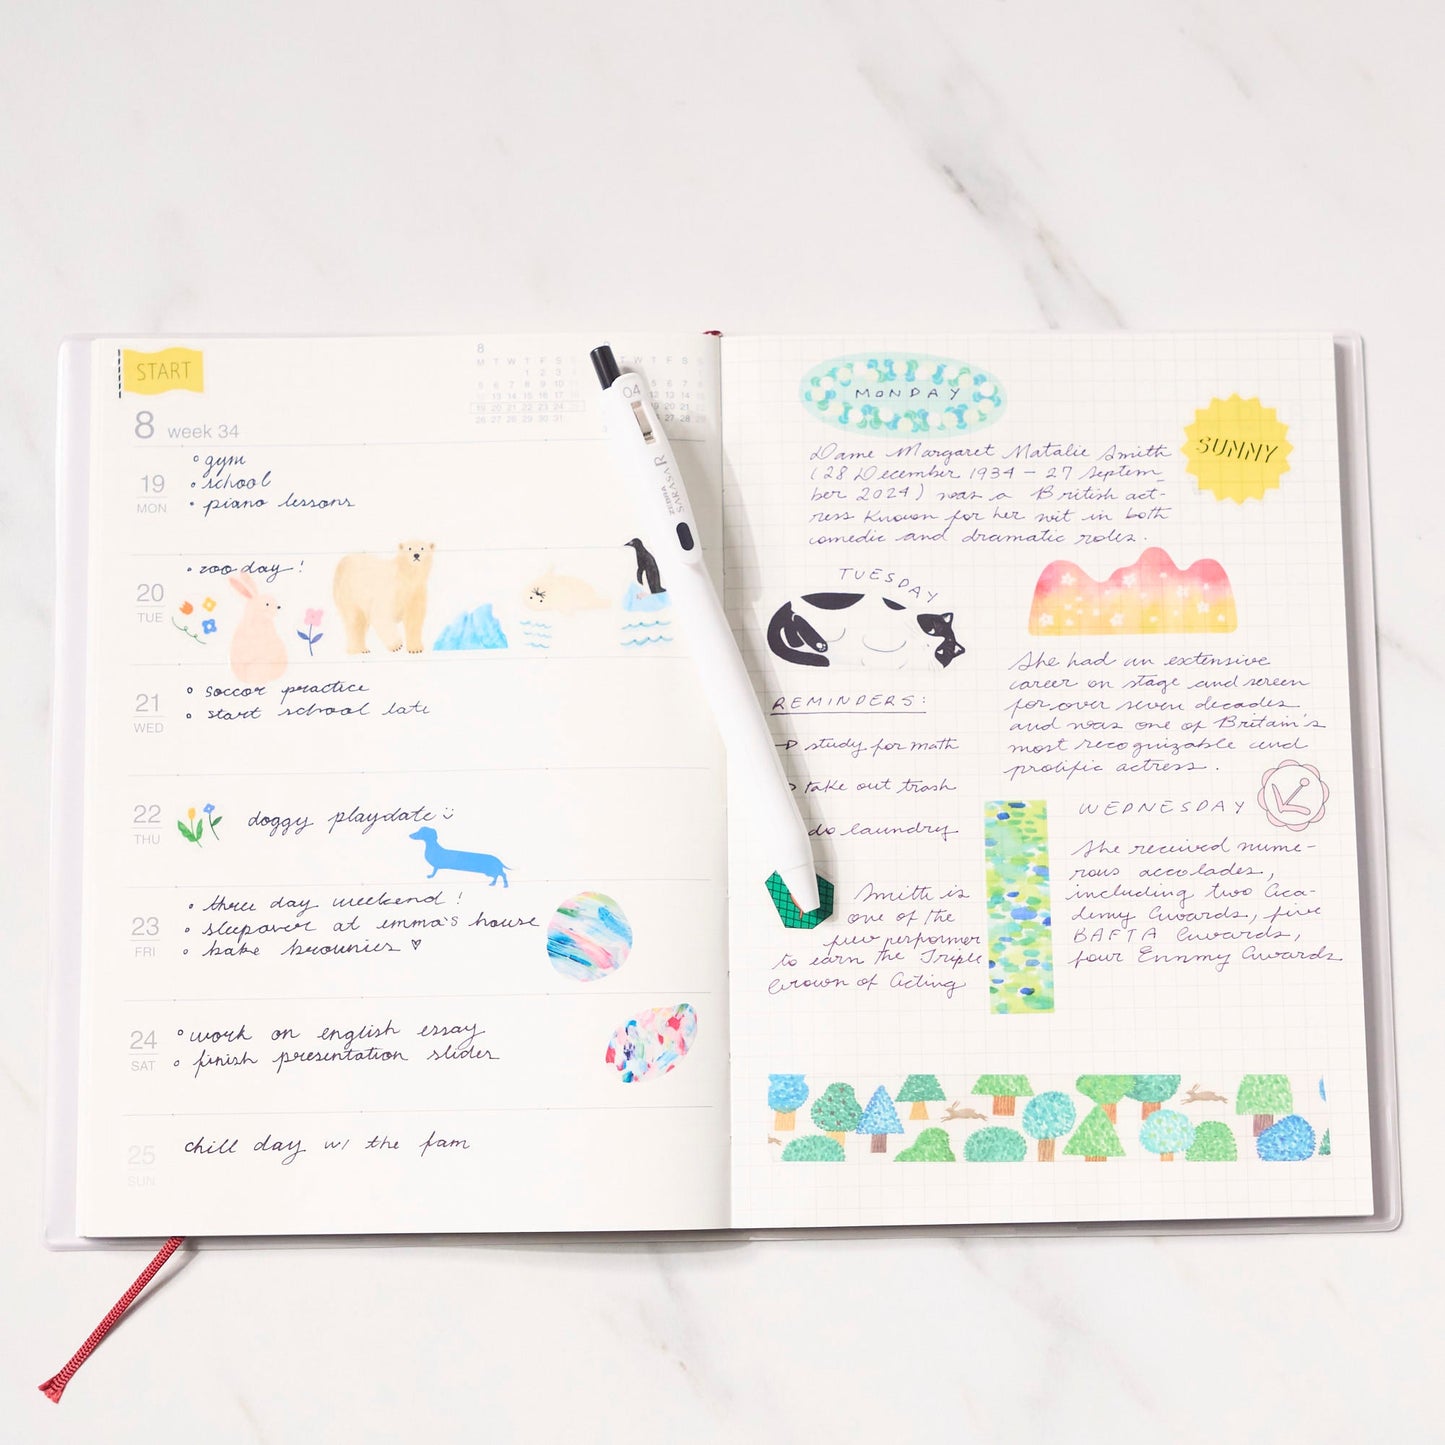 START
8 week 34
8
M T W T F S S
1 2 3 4
5 6 7 8 9 10 11
12 13 14 15 16 17 18
19 20 21 22 23 24 25
26 27 28 29 30 31
04
ZEBRA
SARASA R
19
MON
gym
school
piano lessons
20
TUE
zoo day!
21
WED
soccor practice
start school late
22
THU
doggy playdate
23
FRI
three day weekend!
sleepover at emma's house
bake brownies ♡
24
SAT
work on english essay
finish presentation slides
25
SUN
chill day w/ the fam
MONDAY
SUNNY
Dame Margaret Natalie Smith
(28 December 1934 – 27 Septem-
ber 2024) was a British act-
ress known for her wit in both
comedic and dramatic roles.
TUESDAY
She had an extensive
career on stage and screen
for over seven decades
and was one of Britain's
most recognizable and
prolific actress.
REMINDERS:
study for math
take out trash
do laundry
WEDNESDAY
She received nume-
rous accolades,
including two Aca-
demy Awards, five
BAFTA Awards,
four Emmy Awards
Smith is
one of the
few performer
to earn the Triple
Crown of Acting